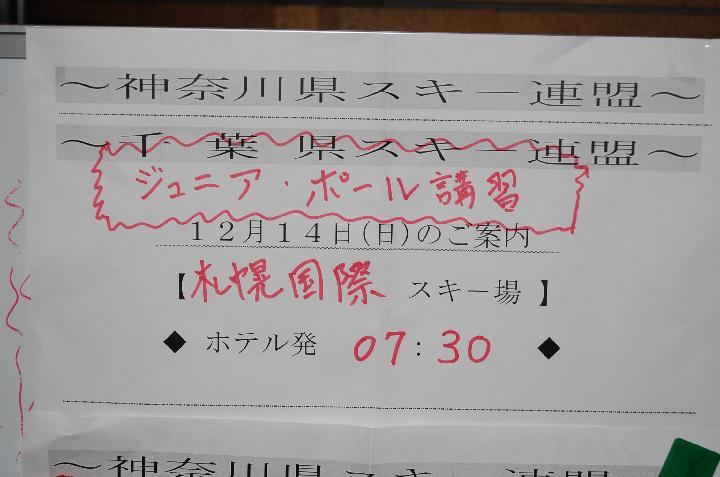 ～神奈川県スキー連盟～
～千葉県スキー連盟～
ジュニア・ポール講習
12月14日(日)のご案内
【札幌国際 スキー場 】
◆ ホテル発 07:30 ◆
～神奈川県スキー連盟